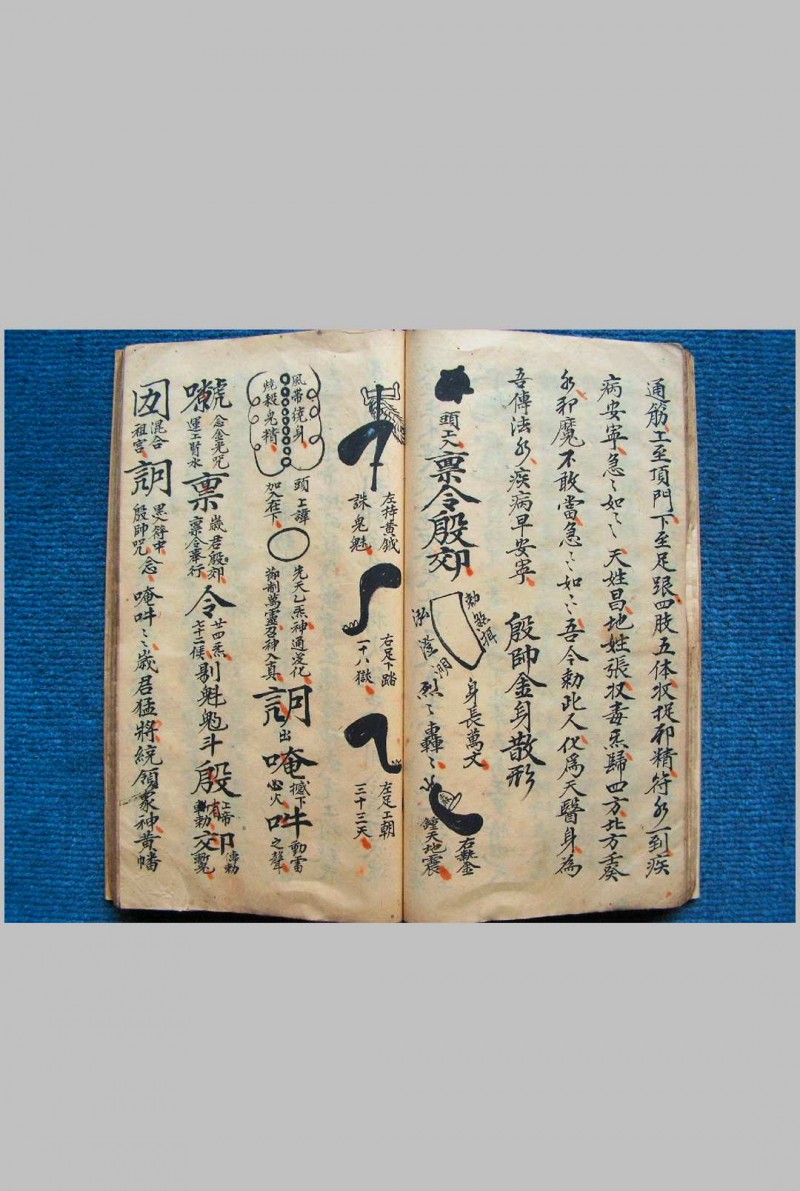 通筋上至頂門下至足跟四肢五体收捉邪精符水一到疾
病安寧急〻如〻天姓昌地姓張收毒炁歸四方北方壬癸
水邪魔不敢當急〻如〻吾今勅此人化爲天醫身爲
吾傳法水疾病早安寧
殷帥金身散形
頭上入
稟令殷郊
身長萬丈
烈〻轟〻
右執金
鐘天地震
左持黃鉞
誅鬼魅
右足下踏
一十八獄
左足上朝
三十三天
風帶繞身
燒殺鬼精
頭上諱
加入在下
先天乙炁神通變化
御制萬靈召神入真
出
唵
撼下
心火
吽
動雷
之聲
念金光咒
運上腎水
稟
歲君殷郊
稟令奉行
令
廿四炁
七十二候
魁
斗
殷
上帝
有勅
郊
混合
祖宮
罡符中
殷帥咒
念
唵吽〻歲君猛將統領眾神黃幡